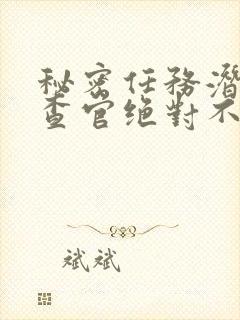 秘密任務潛
查官绝對不
斌斌